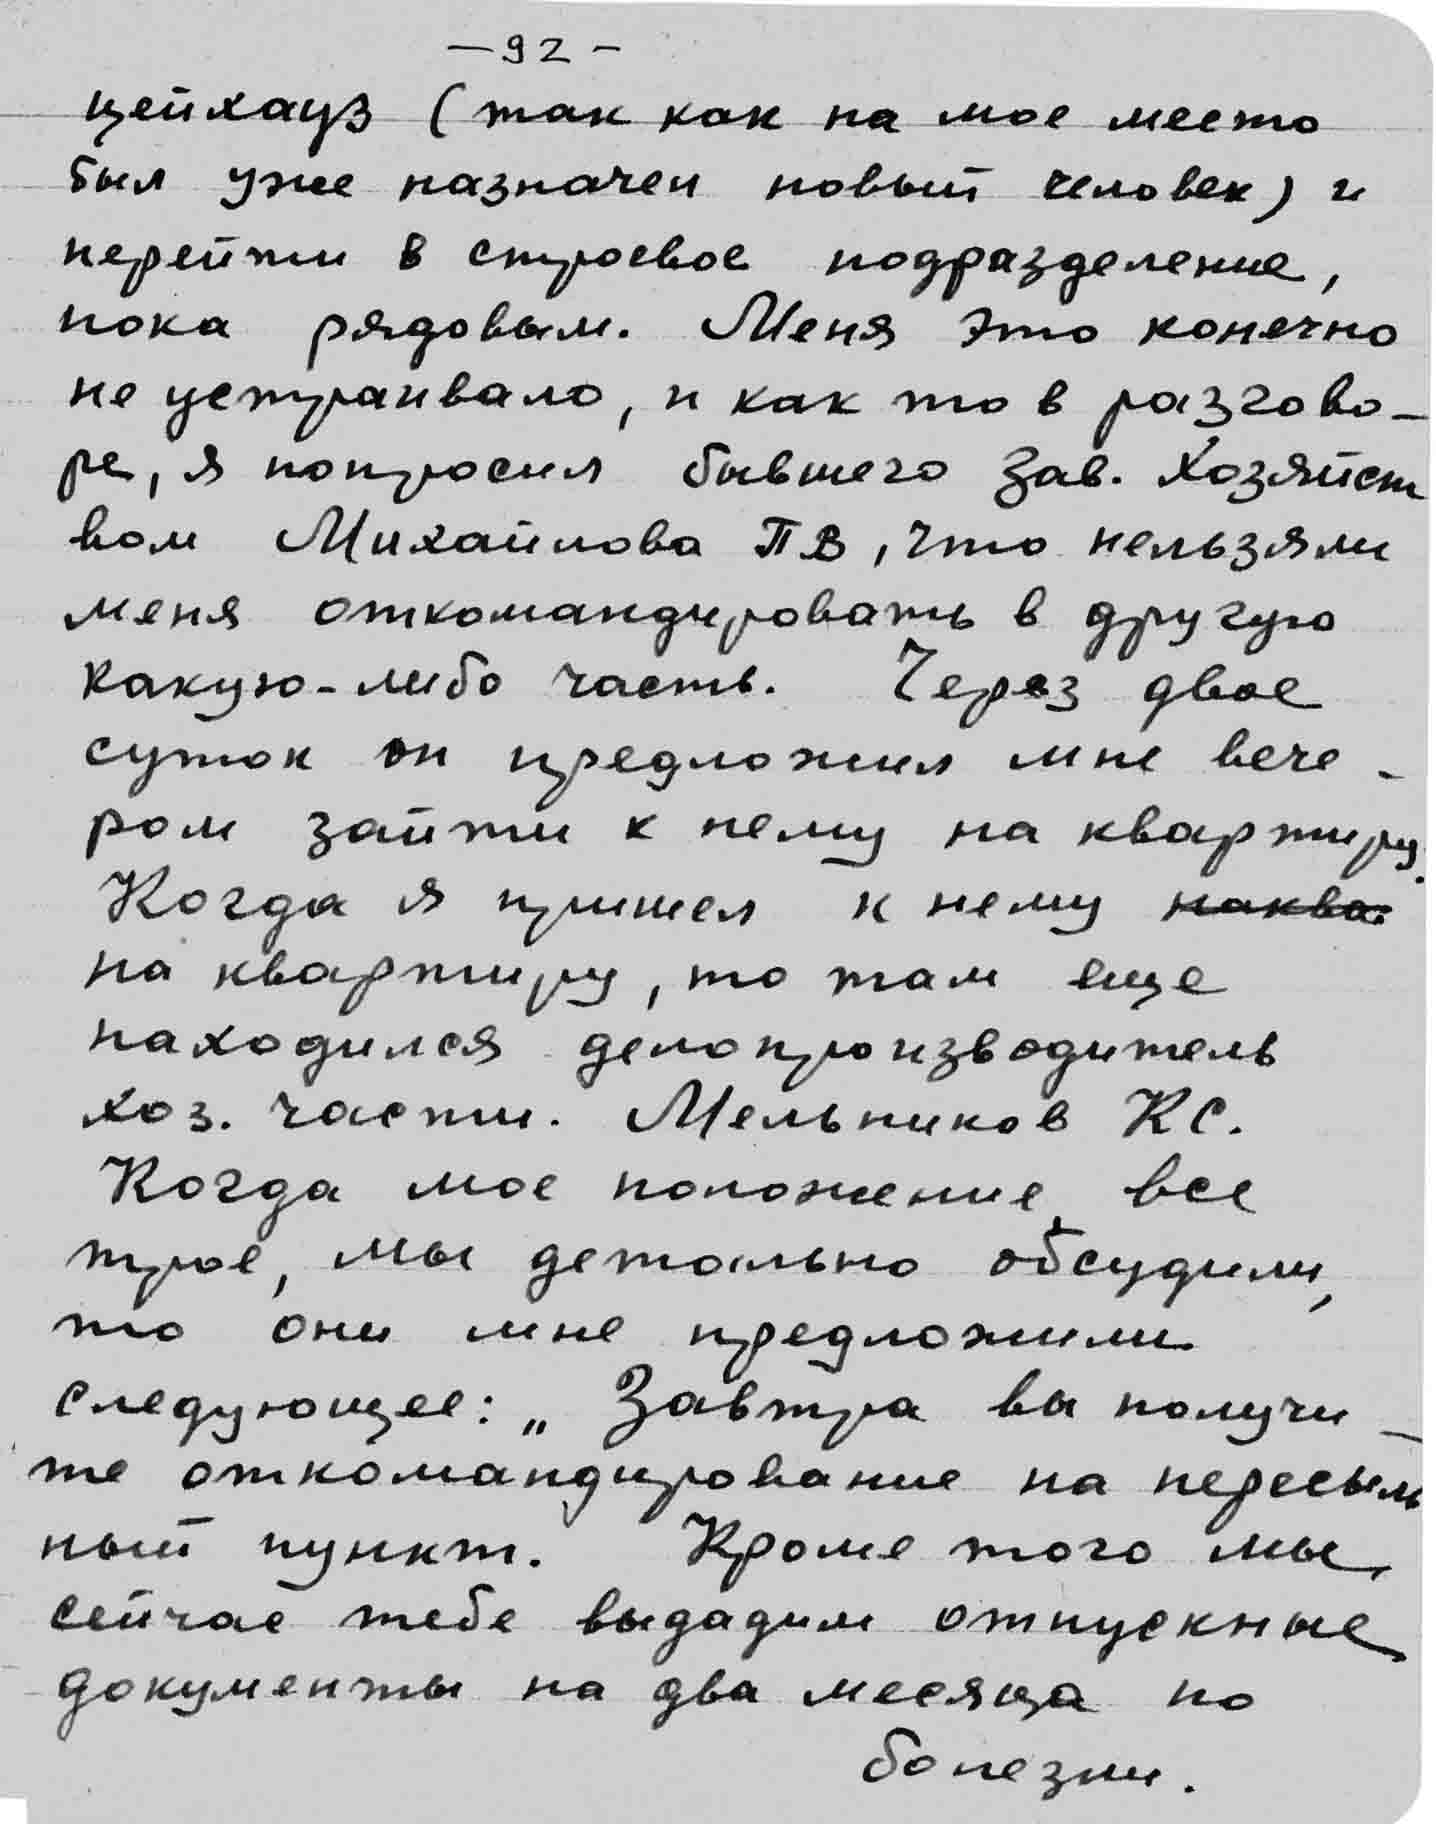 -92-
цейхауз (так как на мое место
был уже назначен новый человек) и
перейти в строевое подразделение,
пока рядовым. Меня это конечно
не устраивало, и как то в разгово-
ре, я попросил бывшего Зав. Хозяйст
вом Михайлова ПВ, что нельзяли
меня откомандировать в другую
какую-либо часть. Через двое
суток он предложил мне вече-
ром зайти к нему на квартиру.
Когда я пришел к нему наква
на квартиру, то там еще
находился делопроизводитель
хоз. части. Мельников КС.
Когда мое положение, все
трое, мы детально обсудили,
то они мне предложили
следующее: „Завтра вы получи-
те откомандирование на пересыль
ный пункт. Кроме того мы
сейчас тебе выдадим отпускные
документы на два месяца по
болезни.